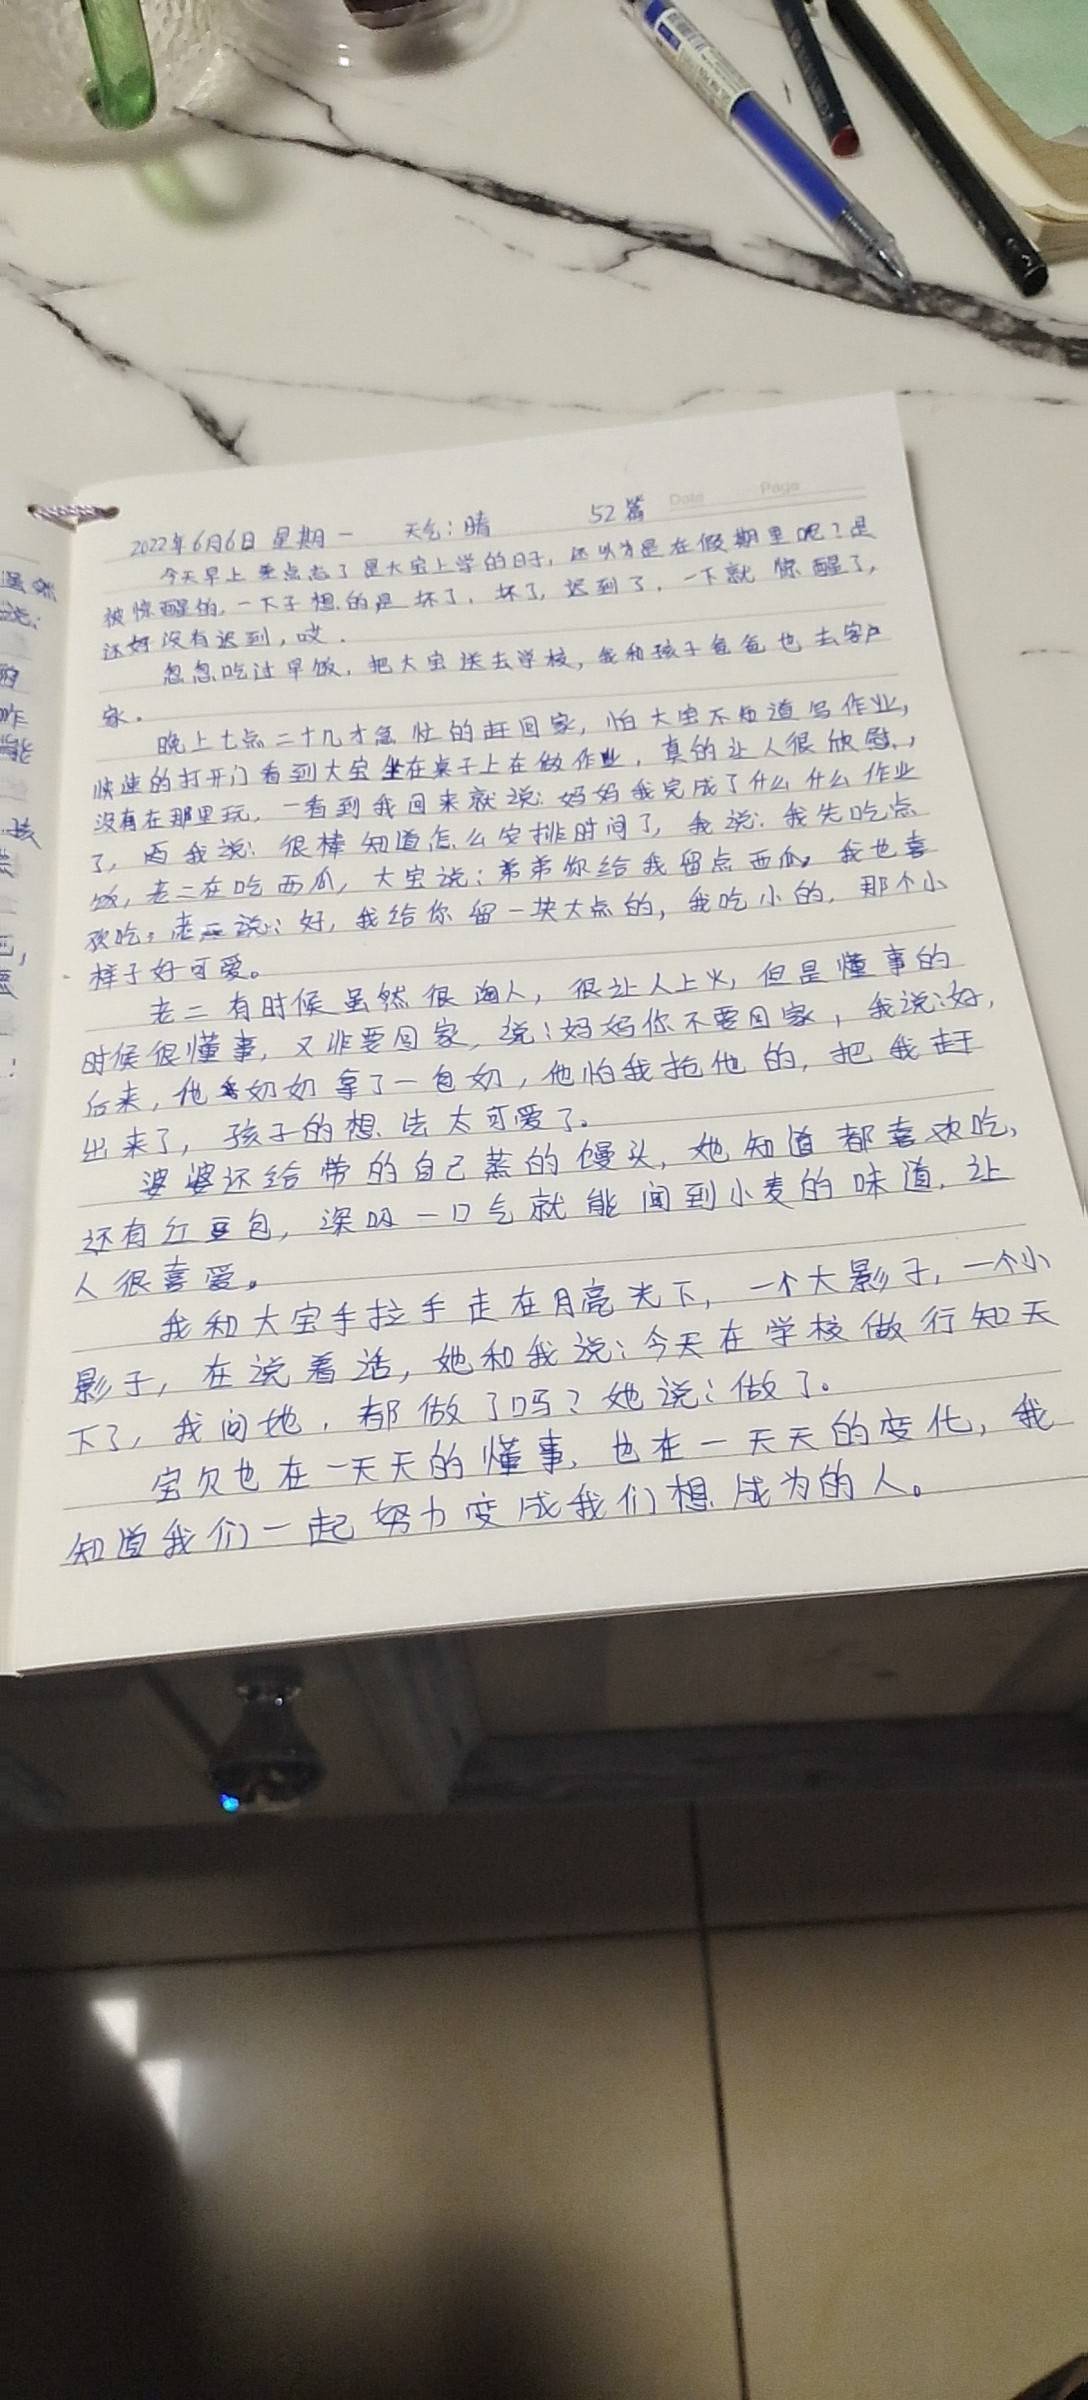 Date Page
2022年6月6日 星期一 天气:晴 52篇
今天早上差点忘了是大宝上学的日子,还以为是在假期里呢?是
被惊醒的,一下子想的是坏了,坏了,迟到了,一下就惊醒了,
还好没有迟到,哎.
忽忽吃过早饭,把大宝送去学校,我和孩子爸爸也去客户
家.
晚上七点二十几才急忙的赶回家,怕大宝不知道写作业,
快速的打开门看到大宝坐在桌子上在做作业,真的让人很欣慰,
没有在那里玩,一看到我回来就说:妈妈我完成了什么什么作业
了,而我说:很棒知道怎么安排时间了,我说:我先吃点
饭,老二在吃西瓜,大宝说:弟弟你给我留点西瓜,我也喜
欢吃,老二说:好,我给你留一块大点的,我吃小的,那个小
样子好可爱。
老二有时候虽然很淘人,很让人上火,但是懂事的
时候很懂事,又非要回家,说:妈妈你不要回家,我说:好,
后来,他奶奶拿了一包奶,他怕我抢他的,把我赶
出来了,孩子的想法太可爱了。
婆婆还给带的自己蒸的馒头,她知道都喜欢吃,
还有红豆包,深吸一口气就能闻到小麦的味道,让
人很喜爱。
我和大宝手拉手走在月亮光下,一个大影子,一个小
影子,在说着话,她和我说:今天在学校做行知天
下了,我问她,都做了吗?她说:做了。
宝贝也在一天天的懂事,也在一天天的变化,我
知道我们一起努力变成我们想成为的人。